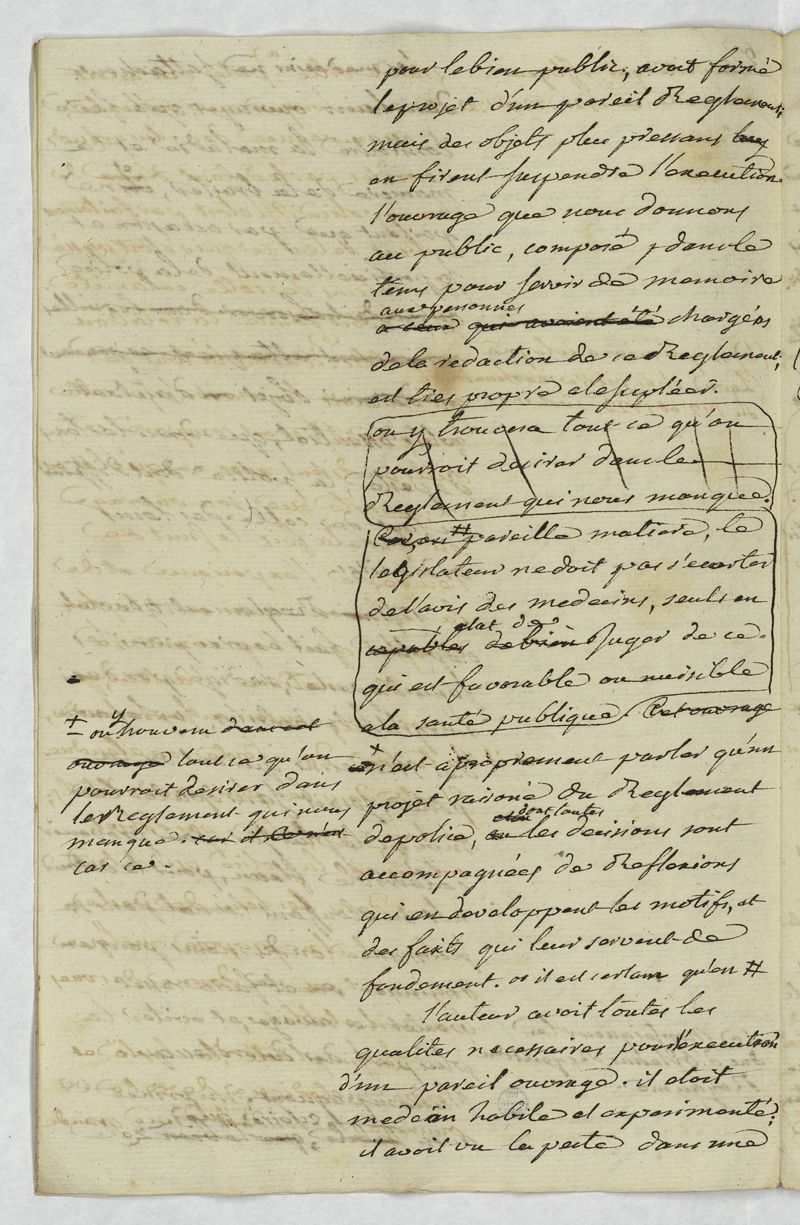 pour le bien public, avoit formé
le projet d'un pareil Reglement;
mais des objets plus pressans
en firent suspendre l'execution.
l'ouvrage que nous donnons
au public, composé dans le
tems pour servir de memoire
aux personnes
a ceux qui avoient été chargées
de la redaction de ce Reglement,
est tres propre a le supléer.
on y trouvera tout ce qu'on
pourroit desirer dans le
Reglement qui nous manque.
Car, en # pareille matiere, le
legislateur ne doit pas s'ecarter
de l'avis des medecins, seuls en
etat de
capables de bien Juger de ce
qui est favorable ou nuisible
a la santé publique. Cet ouvrage
+ on y trouvera dans cet
ouvrage tout ce qu'on
pourroit desirer dans
le Reglement qui nous
manque. car
car ce
+ n'est à proprement parler qu'un
projet raisoné du Reglement
dont toutes
de police, les decisions sont
accompagnées de Reflexions
qui en developpent les motifs, et
des faits qui leur servent de
fondement. or il est certain qu'en #
l'auteur avoit toutes les
qualites necessaires pour l'execution
d'un pareil ouvrage. il etoit
medecin habile et experimenté;
il avoit vu la peste dans une